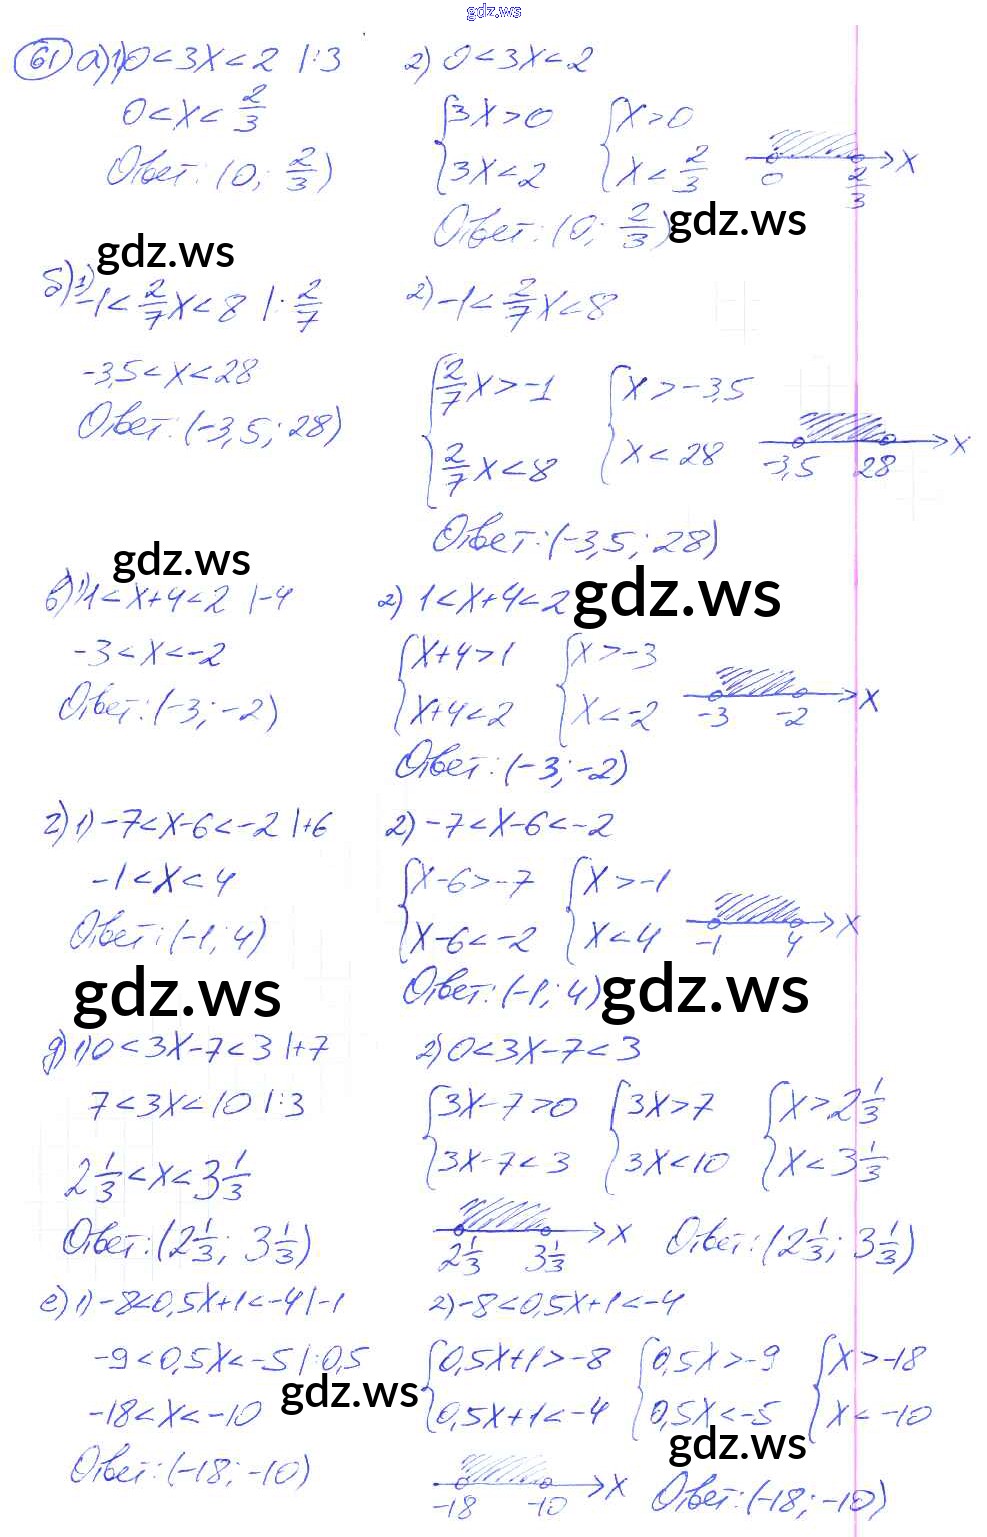 gdz.ws
61 а) 1) 0<3x<2 |:3
0<x<2/3
Ответ: (0; 2/3)
2) 0<3x<2
{3x>0 {x>0
{3x<2 {x<2/3
0 2/3 x
Ответ: (0; 2/3)
gdz.ws
gdz.ws
б) 1) -1<2/7x<8 |:2/7
-3,5<x<28
Ответ: (-3,5; 28)
2) -1<2/7x<8
{2/7x>-1 {x>-3,5
{2/7x<8 {x<28
-3,5 28 x
Ответ: (-3,5; 28)
gdz.ws
gdz.ws
в) 1) 1<x+4<2 |-4
-3<x<-2
Ответ: (-3; -2)
2) 1<x+4<2
{x+4>1 {x>-3
{x+4<2 {x<-2
-3 -2 x
Ответ: (-3; -2)
г) 1) -7<x-6<-2 |+6
-1<x<4
Ответ: (-1; 4)
2) -7<x-6<-2
{x-6>-7 {x>-1
{x-6<-2 {x<4
-1 4 x
Ответ: (-1; 4)
gdz.ws
gdz.ws
д) 1) 0<3x-7<3 |+7
7<3x<10 |:3
2 1/3<x<3 1/3
Ответ: (2 1/3; 3 1/3)
2) 0<3x-7<3
{3x-7>0 {3x>7 {x>2 1/3
{3x-7<3 {3x<10 {x<3 1/3
2 1/3 3 1/3 x
Ответ: (2 1/3; 3 1/3)
е) 1) -8<0,5x+1<-4 |-1
-9<0,5x<-5 |:0,5
-18<x<-10
Ответ: (-18; -10)
2) -8<0,5x+1<-4
{0,5x+1>-8 {0,5x>-9 {x>-18
{0,5x+1<-4 {0,5x<-5 {x<-10
-18 -10 x
Ответ: (-18; -10)
gdz.ws
gdz.ws